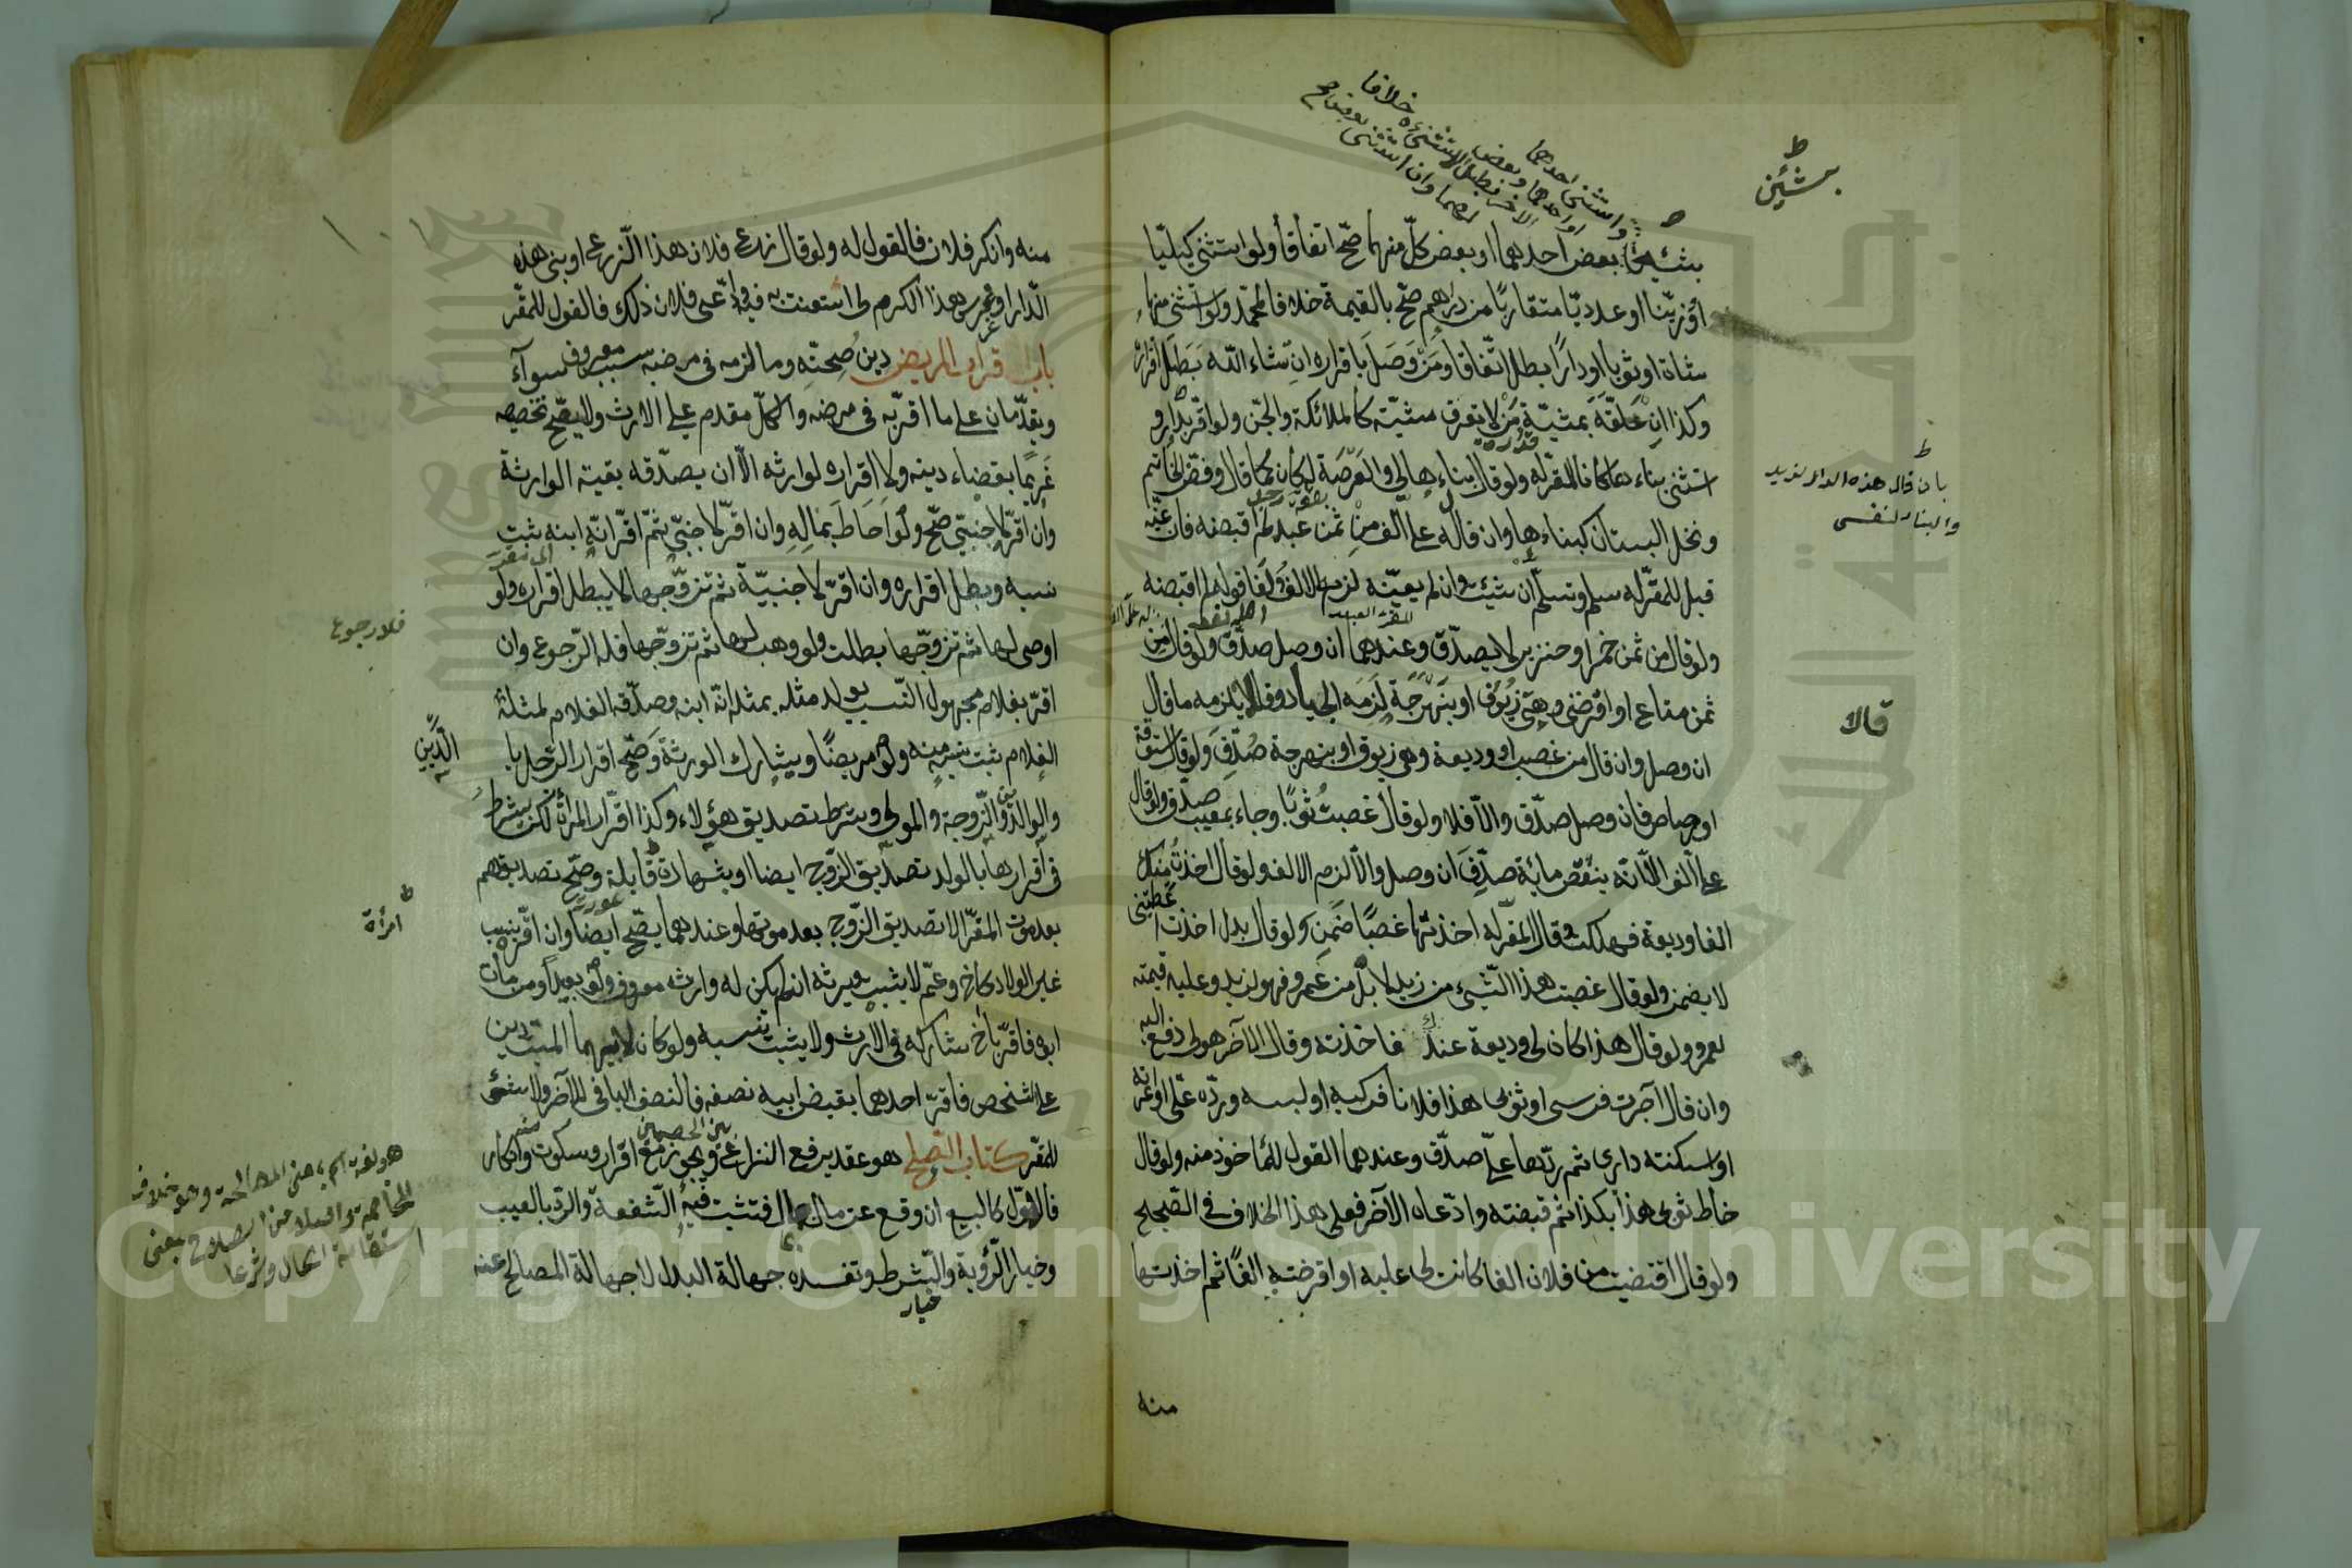 بشيئين
واستثنى احدهما
او احدهما وبعض
الآخر فبطل استثناؤه خلافا
لهما وان استثنى
بشيئين بعض احدهما او بعض كلّ منهما صحّ اتفاقا ولو استثنى كيليّا
او وزنيّا او عدديّا متقاربًا من دراهم صحّ بالقيمة خلافا لمحمّد ولو استثنى منها
شاة او ثوبا او دارًا بطل اتّفاقا ومَنْ وَصَلَ باقراره ان شاء الله بَطَلَ اقراره
وكذا ان عَلّقَهُ بمشيّة مَنْ لا يعرف مشيّته كالملائكة والجنّ ولو اقرّ بدار و
استثنى بناءها كانا للمقرّ له ولو قال بناءها لي والعَرْصَة له كان كما قال وفصّ الخاتم
بان قال هذه الدار لزيد
والبناء لنفسى
ونخل البستان كبناءها وان قال له علىّ الف من ثمن عبد لم اقبضه فان عيّنه
قيل للمقرّ له سلم وتسلّم ان شئت وان لم يعيّنه لزم الالف ولَغَا قوله لم اقبضه
ولو قال من ثمن خمر او خنزير لا يصدّق وعندهما ان وصل صدّق ولو قال من
ثمن متاع او اقرضنى وهى زيُوف او بنَهْرَجَة لَزِمَه الجياد وقالا يلزمه ما قال
قالا
ان وصل وان قال من غصب او وديعة وهى زيوف او بنهرجة صُدّقَ ولو قال ستوقة
او رصاص فان وصل صدّق والّا فلا ولو قال غصبتُ ثوبًا وجاء بمعيب صدّق ولو قال
علىّ الف الّا انّه ينقص مائة صدّقَ ان وصل والّا لزم الالف ولو قال اخذتُ منك
الفا وديعة فهلكت وقال المقرّ له اخذتها غصبًا ضَمِنَ ولو قال بدل اخذتُ اعطيتنى
لا يضمن ولو قال غصبت هذا الشّيئ من زيد لا بل من عمرو فهو لزيد وعليه قيمته
لعمرو ولو قال هذا كان لى وديعة عندك فاخذته وقال الآخر هو لى دفع اليه
وان قال آجرت فرسى او ثوبى هذا فلانا فركبه او لبسه وردّه علىّ او اعرته
او اسكنته دارى ثم ردّها علىّ صدّق وعندهما القول للمأخوذ منه ولو قال
خاط ثوبى هذا بكذا ثم قبضته وادّعاه الآخر فعلى هذا الخلاف فى الصّحيح
ولو قال اقتضيت من فلان الفا كانت لى عليه او اقرضته الفًا ثم اخذتها
منه
منه وانكر فلان فالقول له ولو قال زرع فلان هذا الزّرع او بنى هذه
الدّار او غرس هذا الكرم لى استعنت به فيه وادّعى فلان ذلك فالقول للمقرّ
باب اقرار المريض دين صِحّتِه وما لزمه فى مرضه بسبب معروف سوآء
ويقدّمان على ما اقرّ به فى مرضه والكلّ مقدم على الارث ولا يصّح تخصيصه
غَريمًا بقضاء دينه ولا اقراره لوارثه الّا ان يصدّقه بقية الوارثة
وان اقرّ لاجنبّي صحّ ولو اَحَاطَ بمَالِهِ وان اقرّ لاجنبّي ثمّ اقرّ انّه ابنه ثبت
نسبه وبطل اقراره وان اقرّ لاجنبيّة ثم تزوّجها لا يبطل اقراره ولو
اوصى لها ثم تزوّجها بطلت ولو وهب لها ثم تزوّجها فله الرّجوع وان
فلا رجوع
اقرّ بغلام مجهول النّسب يولد مثله بمثله انّه ابنه وصدّقه الغلام
الغلام ثبت نسبه منه ولو مريضًا ويشارك الورثة وَصَحّ اقرار الرّجل با
والوالدين والزّوجة والمولى وشرط تصديق هؤلاء وكذا اقرار المرأة لكن يشترط
فى اقرارها بالولد تصديق الزّوج ايضا او شهادة قابلة وصّح تصديقهم
امرأة
بعد موت المقرّ الّا تصديق الزّوج بعد موتها وعندهما يصّح ايضا وان اقرّ بنسب
غير الولاد كاخ وعمّ لا يثبت ويرثه ان لم يكن له وارث معروف ولو بعيدًا ومن مات
ابوه فاقرّ باخ شاركه فى الارث ولا يثبت نسبه ولو كان لابيهما الميّت دين
على شخص فاقرّ احدهما بقبض ابيه نصفه فالنصف الباقى للآخر ولا شئ
للمقرّ كتاب الصّلح هو عقد يرفع النزاع ويجوز مع اقرار وسكوت وانكار
بين الخصمين
فالاوّل كالبيع ان وقع عن مال بمال فتثبت فيه الشّفعة والرّد بالعيب
وخيار الرّؤية والشّرط وتفسده جهالة البدل لا جهالة المصالح عنه
خيار
هو لغة اسم بمعنى المصالحة وهو خلاف
المخاصمة واصله من الصلاح بمعنى
استقامة الحال وشرعا
Copyright © King Saud University